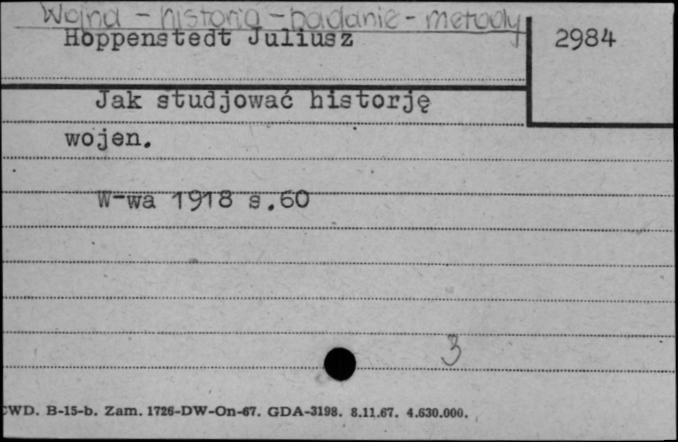 Wojna - historia - badanie - metody
Hoppenstedt Juliusz
2984
Jak studjować historję
wojen.
W-wa 1918 s.60
3
CWD. B-15-b. Zam. 1726-DW-On-67. GDA-3198. 8.11.67. 4.630.000.